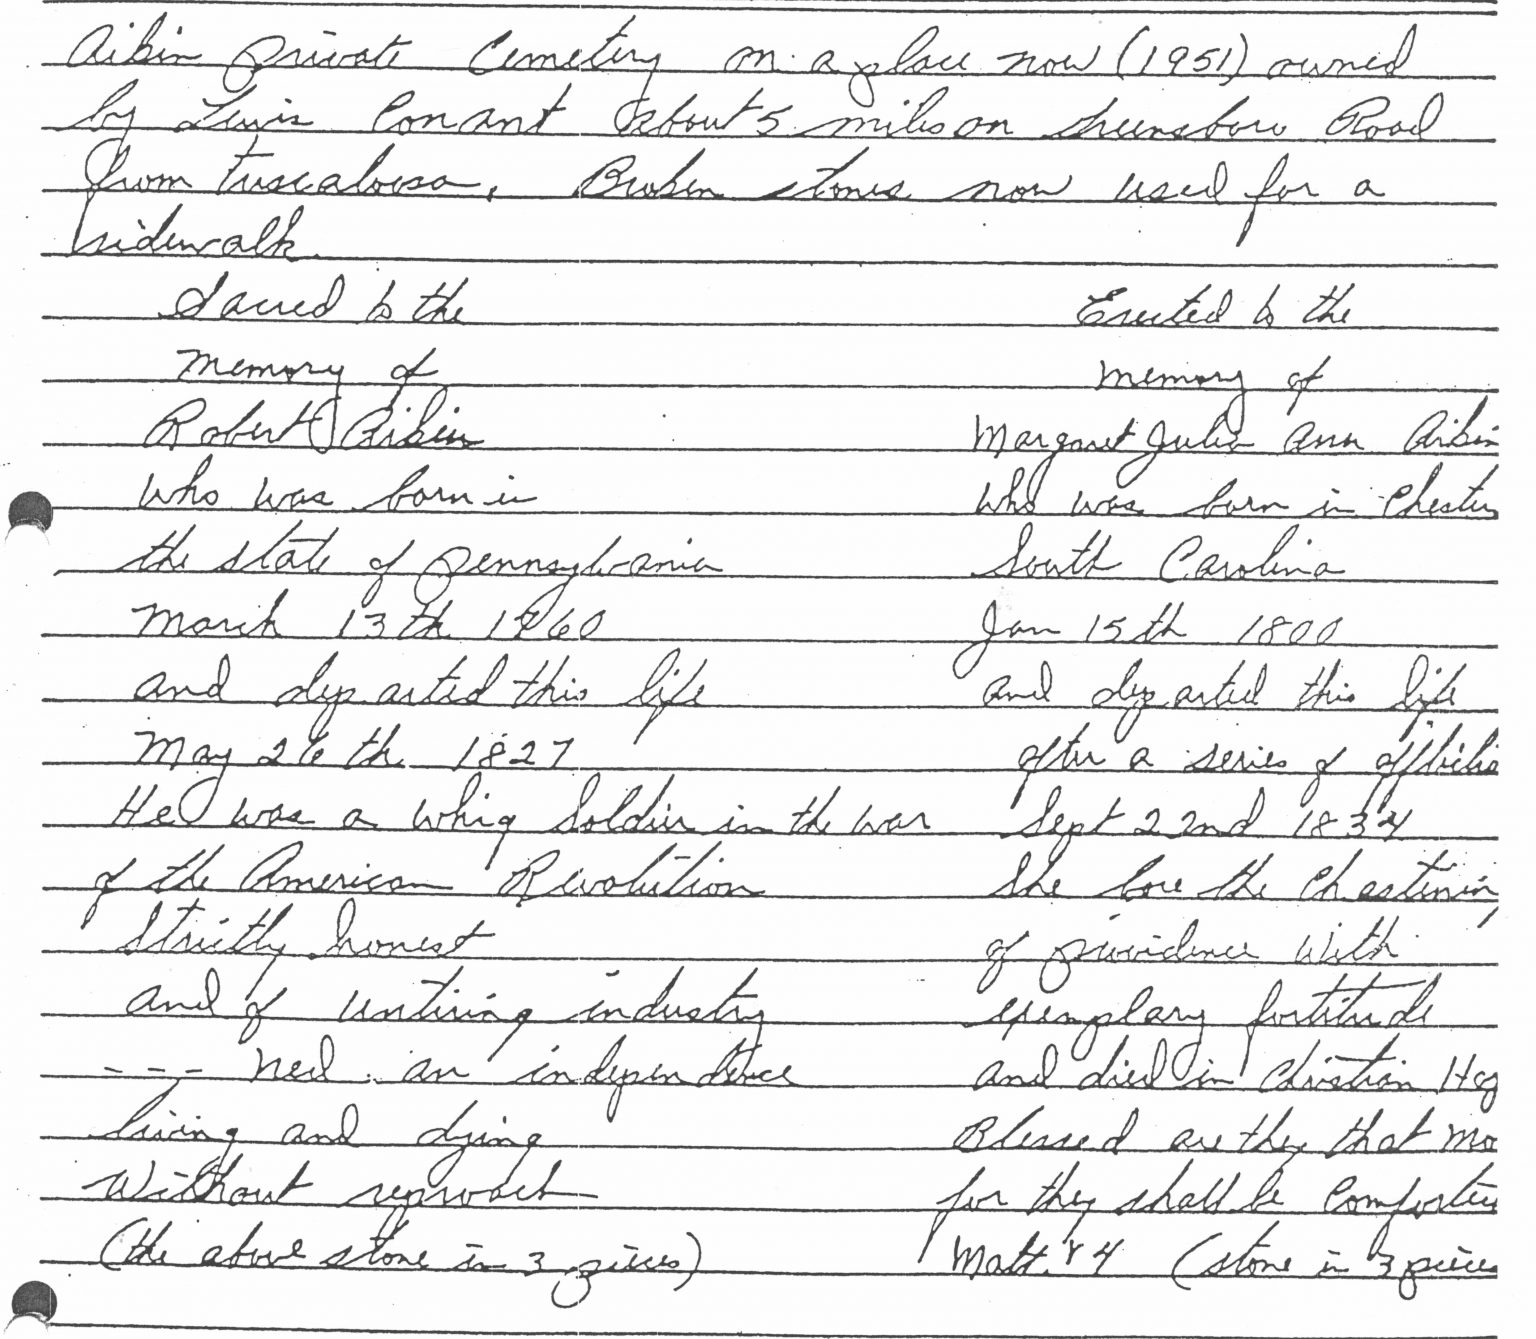 Aikin private Cemetery on a place now (1951) owned
by Lewis Conant about 5 miles on Greensboro Road
from Tuscaloosa. Broken stones now used for a
sidewalk.
Sacred to the
memory of
Robert Aikin
who was born in
the state of Pennsylvania
March 13th 1760
and departed this life
May 26th 1827
He was a Whig Soldier in the war
of the American Revolution
Strictly honest
and of untiring industry
--- ned an independence
living and dying
Without reproach
(the above stone in 3 pieces)
Erected to the
memory of
Margaret Julia Ann Aikin
who was born in Chester
South Carolina
Jan 15th 1800
and departed this life
after a series of
Sept 22nd 1834
She bore the
of providence with
exemplary fortitude
and died in Christian Ho
Blessed are they that mo
for they shall be Comforted
Matt. 4 (stone in 3 pieces